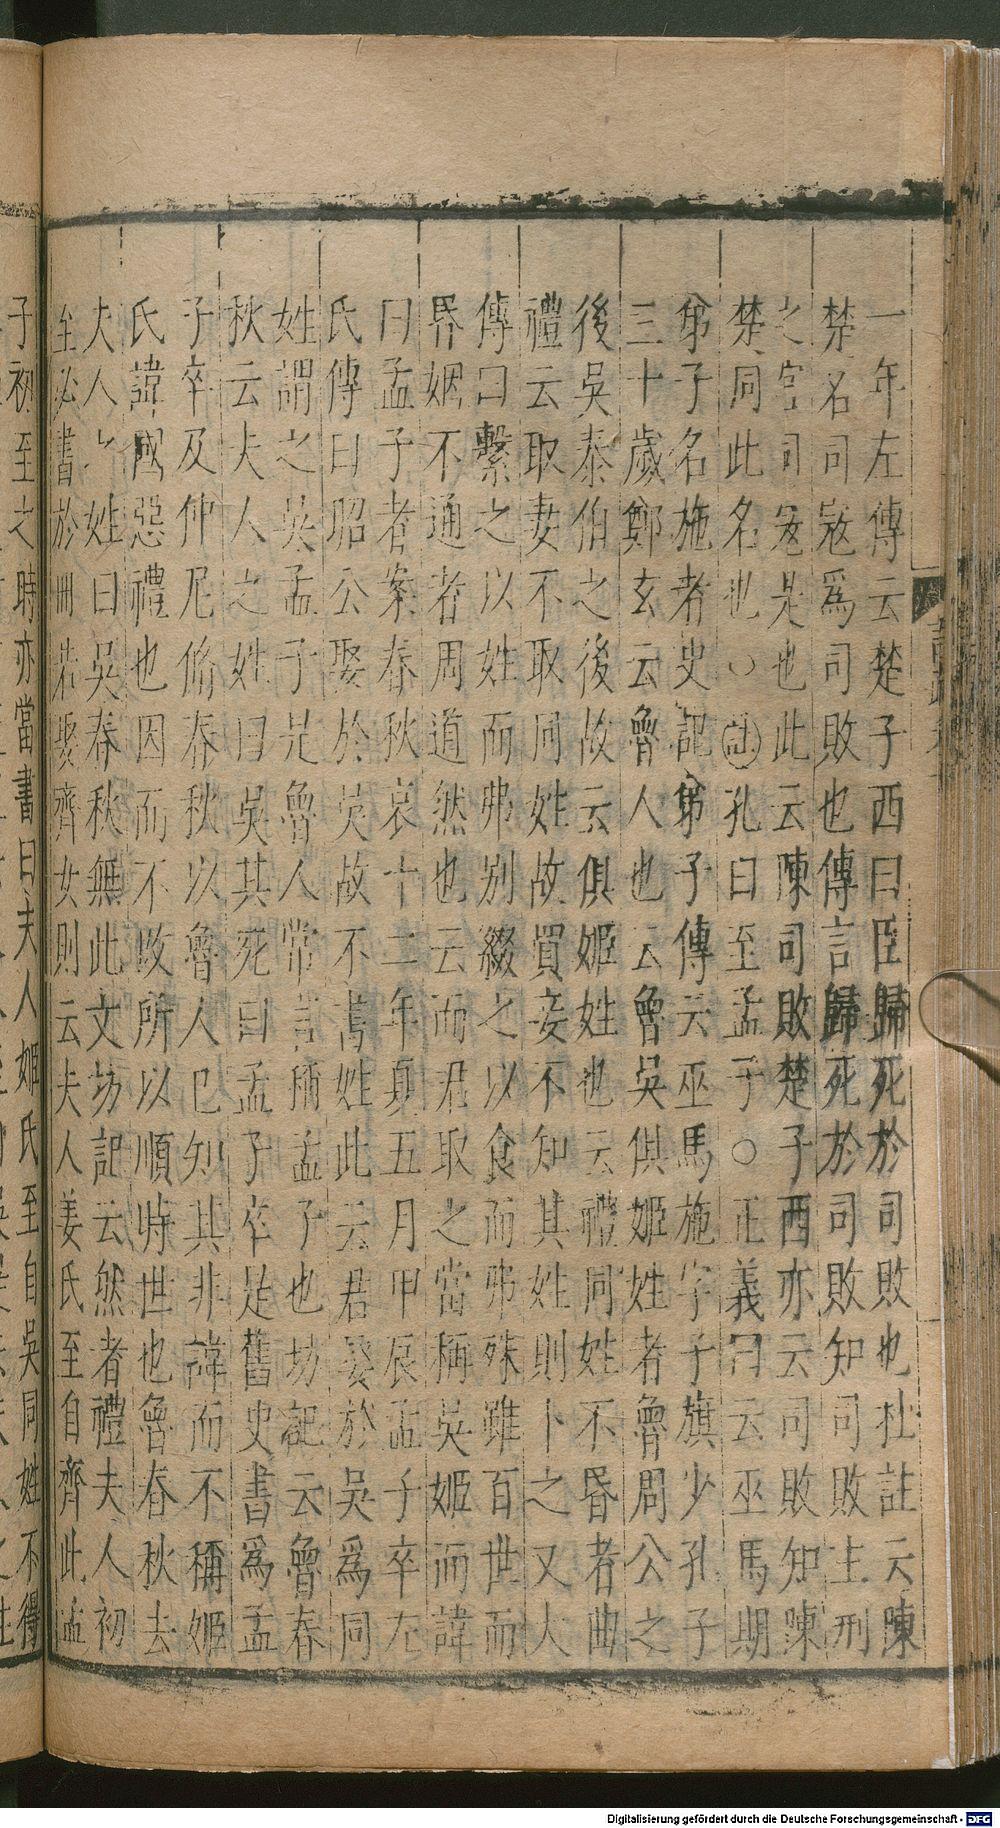 一年左傳云楚子西曰臣歸死於司敗也杜註云陳
楚名司寇爲司敗也傳言歸死於司敗知司敗主刑
之官司寇是也此云陳司敗楚子西亦云司敗知陳
楚同此名也○註孔曰至孟子○正義曰云巫馬期
弟子名施者史記弟子傳云巫馬施字子旗少孔子
三十歲鄭玄云魯人也云魯吳俱姬姓者魯周公之
後吳泰伯之後故云俱姬姓也云禮同姓不昏者曲
禮云取妻不取同姓故買妾不知其姓則卜之又大
傳曰繫之以姓而弗别綴之以食而弗殊雖百世而
昬姻不通者周道然也云而君取之當稱吳姬而諱
曰孟子者案春秋哀十二年夏五月甲辰孟子卒左
氏傳曰昭公娶於吳故不書姓此云君娶於吳爲同
姓謂之吳孟子是魯人常言稱孟子也坊記云魯春
秋云夫人之姓曰吳其死曰孟子卒是舊史書爲孟
子卒及仲尼脩春秋以魯人已知其非諱而不稱姬
氏諱國惡禮也因而不改所以順時世也魯春秋去
夫人之姓曰吳春秋無此文坊記云然者禮夫人初
至必書於冊若娶齊女則云夫人姜氏至自齊此孟
子初至之時亦當書曰夫人姬氏至自吳同姓不得
Digitalisierung gefördert durch die Deutsche Forschungsgemeinschaft - DFG